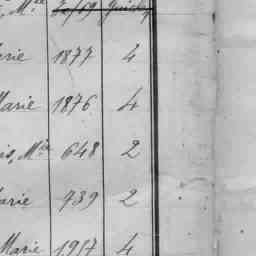 Mie
arie 1877 4
Marie 1876 4
is, Mie 648 2
arie 739 2
Marie 1957 4